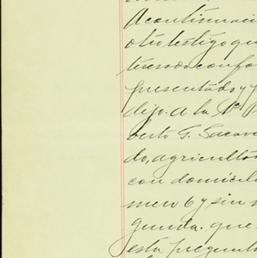 A continuaci
otro testigo qu
teresado confo
presentado y
dijo: a la
berto G.
do, agricultor
con domicil
mero 6 y sin
gunda. que
esta pregunta